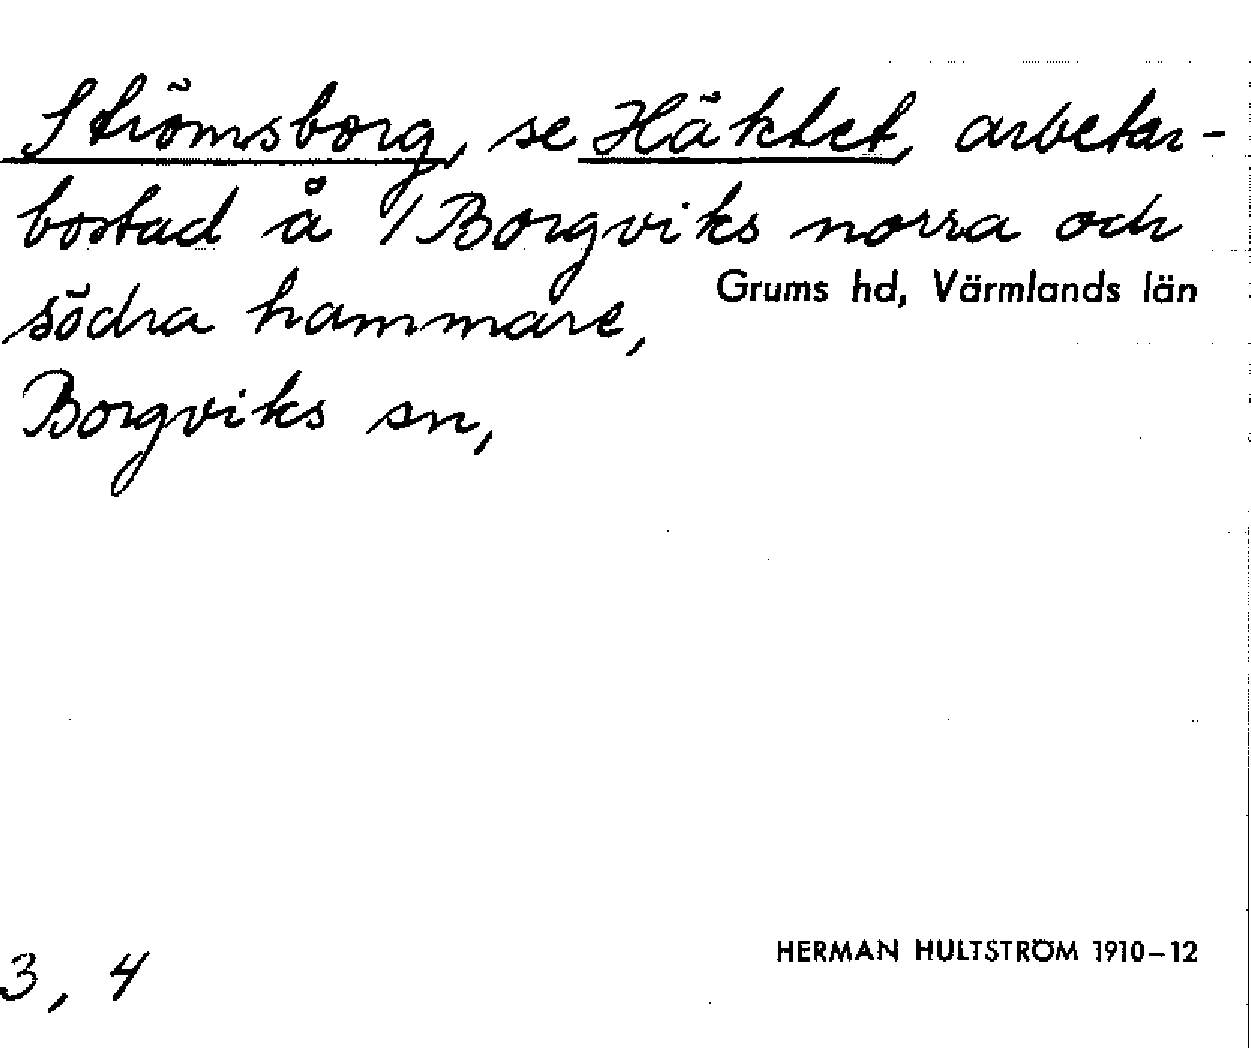 Strömsborg, se Häktet, arbetar-
bostad å 1/1 Borgviks norra och
södra hammare,
Grums hd, Värmlands län
Borgviks sn,
3, 4
HERMAN HULTSTRÖM 1910-12